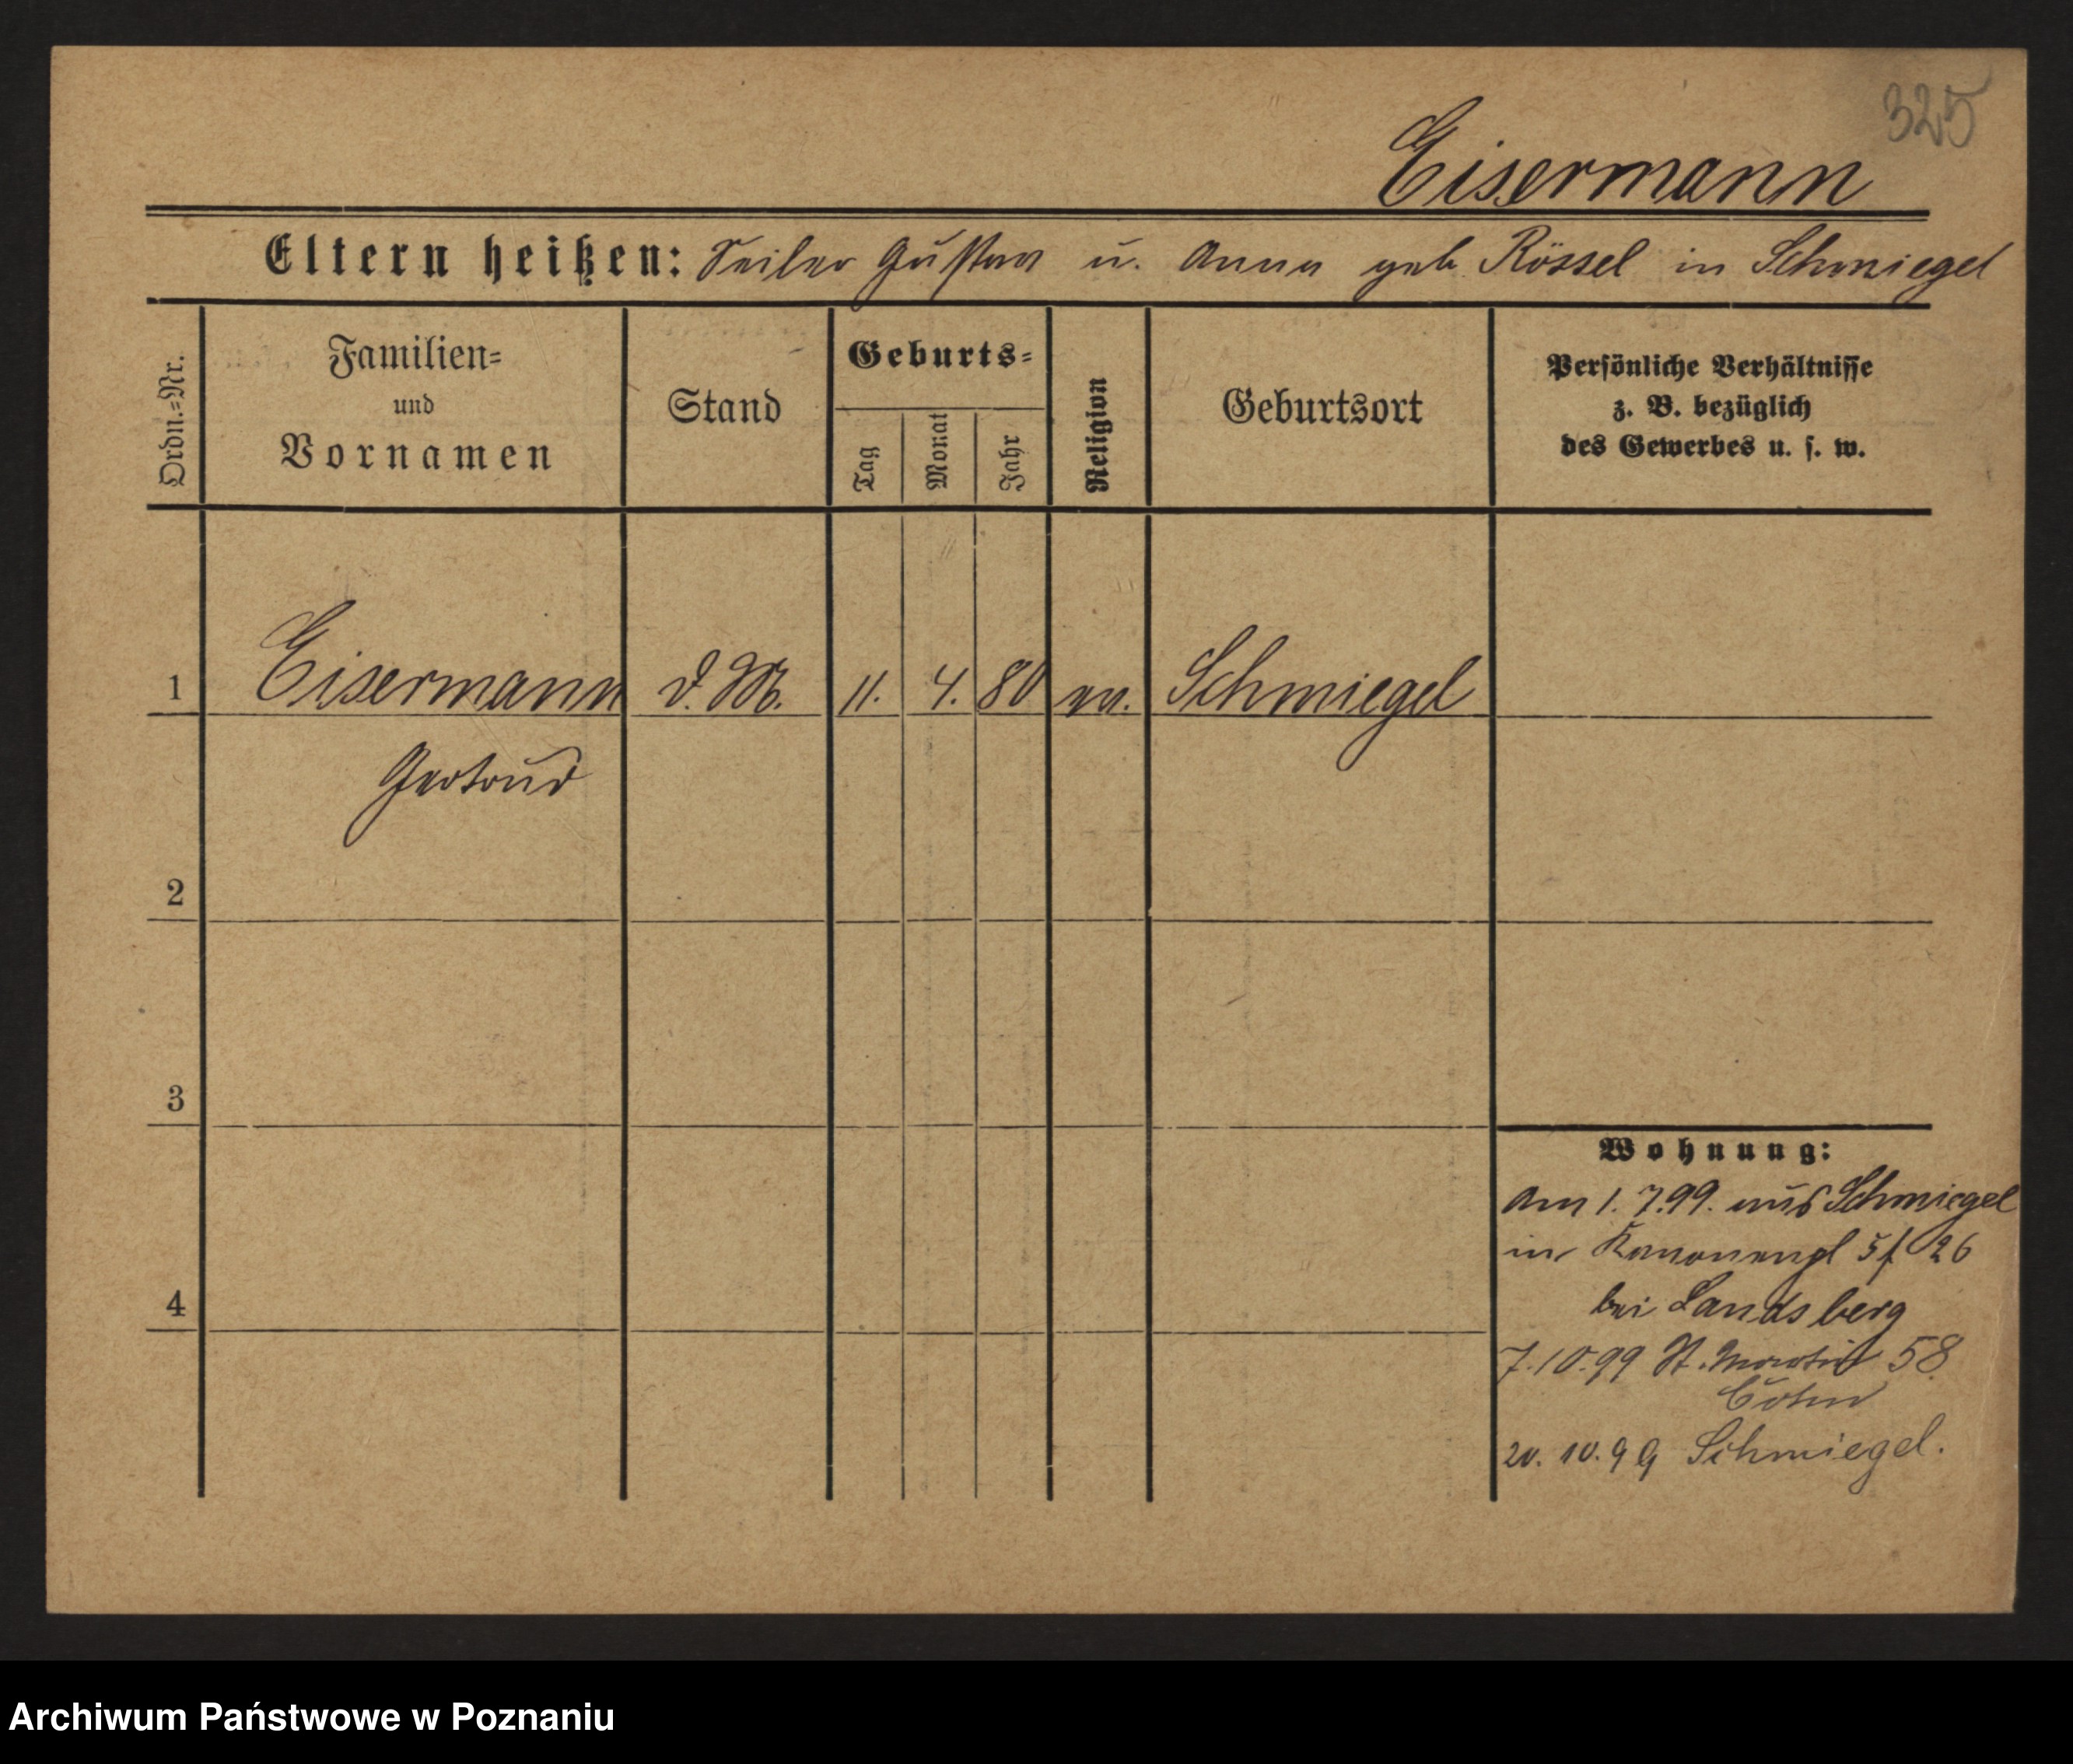 325
Eisermann
Eltern heißen: Seiler Gustav u. Anna geb. Rössel in Schmiegel
Ordn.=Nr.
Familien=
und
Vornamen
Stand
Geburts=
Tag
Monat
Jahr
Religion
Geburtsort
Persönliche Verhältnisse
z. B. bezüglich
des Gewerbes u. s. w.
1 Eisermann d. M. 11. 4. 80 ev. Schmiegel
Gertrud
2
3
4
Wohnung:
Am 1. 7.99. aus Schmiegel
in Kanonenpl 26
bei Landsberg
7.10.99 St. Martin 58
20. 10. 99 Schmiegel.
Archiwum Państwowe w Poznaniu